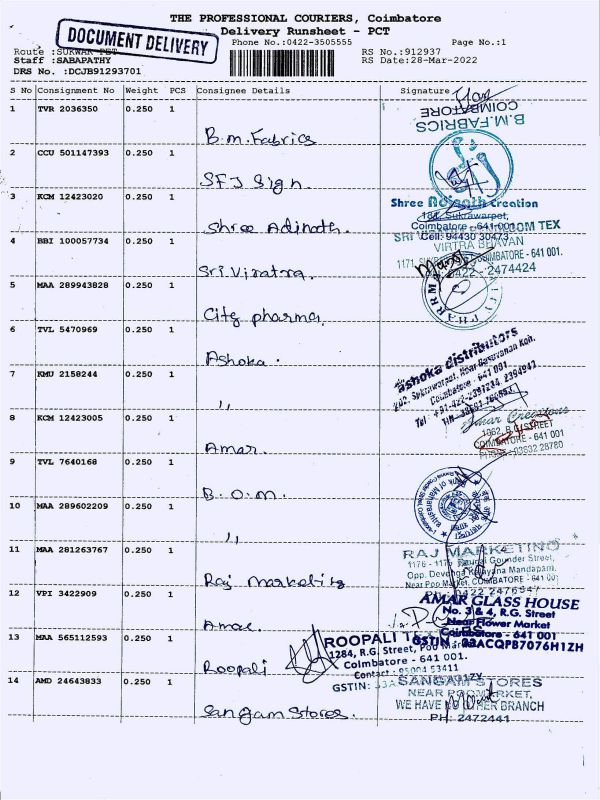 THE PROFESSIONAL COURIERS, Coimbatore
DOCUMENT DELIVERY
Delivery Runsheet - PCT
Phone No.:0422-3505555 Page No.:1
Route : RS No.:912937
Staff :SABAPATHY RS Date:28-Mar-2022
DRS No. :DCJB91293701
S No Consignment No Weight PCS Consignee Details Signature
1 TVR 2036350 0.250 1
B.M.FABRICS COIMBATORE
B.m.Fabrics
2 CCU 501147393 0.250 1
SFJ Sign.
3 KCM 12423020 0.250 1
Shree Adinath Creation
184, Sukrawarpet,
Coimbatore - 641 001.
Cell: 94430 30473
Shree Adinath.
4 BBI 100057734 0.250 1
VIRTRA BHAVAN
COIMBATORE - 641 001.
2474424
Sri.Viratra.
5 MAA 289943828 0.250 1
City pharma.
6 TVL 5470969 0.250 1
ashoka distributors
Coimbatore - 641 001
Ashoka.
7 KMU 2158244 0.250 1
,,
8 KCM 12423005 0.250 1
Amar Creations
COIMBATORE - 641 001
Amar.
9 TVL 7640168 0.250 1
Bank of Maharashtra
B.O.M.
10 MAA 289602209 0.250 1
,,
11 MAA 281263767 0.250 1
RAJ MARKETING
Raj marketing
12 VPI 3422909 0.250 1
AMAR GLASS HOUSE
No. 3 & 4, R.G. Street
Near Flower Market
Coimbatore - 641 001
GSTIN : 33ACQPB7076H1ZH
Amar.
13 MAA 565112593 0.250 1
ROOPALI
1284, R.G. Street,
Coimbatore - 641 001.
GSTIN:
Roopali
14 AMD 24643833 0.250 1
SANGAM STORES
NEAR POO MARKET,
WE HAVE NO OTHER BRANCH
PH: 2472441
Sangam Stores.